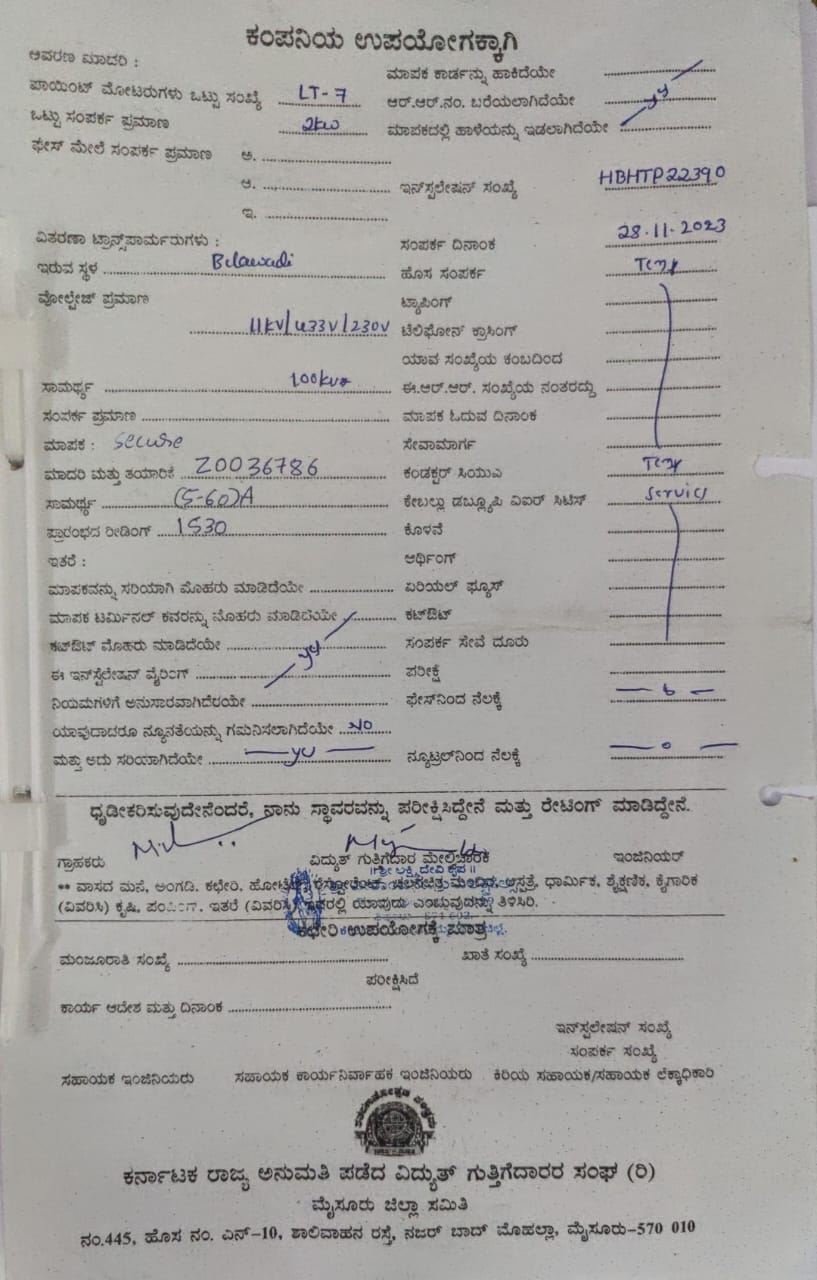 ಕಂಪನಿಯ ಉಪಯೋಗಕ್ಕಾಗಿ
ಆವರಣ ಮಾದರಿ :
ಮಾಪಕ ಕಾರ್ಡನ್ನು ಹಾಕಿದೆಯೇ
ಪಾಯಿಂಟ್ ಮೋಟರುಗಳು ಒಟ್ಟು ಸಂಖ್ಯೆ LT-7
ಆರ್.ಆರ್.ನಂ. ಬರೆಯಲಾಗಿದೆಯೇ
ಒಟ್ಟು ಸಂಪರ್ಕ ಪ್ರಮಾಣ 2kw
ಮಾಪಕದಲ್ಲಿ ಹಾಳೆಯನ್ನು ಇಡಲಾಗಿದೆಯೇ
ಫೇಸ್ ಮೇಲೆ ಸಂಪರ್ಕ ಪ್ರಮಾಣ ಅ.
ಆ. ಇನ್‌ಸ್ಟಲೇಷನ್ ಸಂಖ್ಯೆ HBHTP22390
ಇ.
ವಿತರಣಾ ಟ್ರಾನ್ಸ್‌ಪಾರ್ಮರುಗಳು : ಸಂಪರ್ಕ ದಿನಾಂಕ 28.11.2023
ಇರುವ ಸ್ಥಳ Belawadi ಹೊಸ ಸಂಪರ್ಕ Temp
ವೋಲ್ಟೇಜ್ ಪ್ರಮಾಣ ಟ್ಯಾಪಿಂಗ್
11kV/433V/230V ಟೆಲಿಫೋನ್ ಕ್ರಾಸಿಂಗ್
ಯಾವ ಸಂಖ್ಯೆಯ ಕಂಬದಿಂದ
ಸಾಮರ್ಥ್ಯ 100kva ಈ.ಆರ್.ಆರ್. ಸಂಖ್ಯೆಯ ನಂತರದ್ದು
ಸಂಪರ್ಕ ಪ್ರಮಾಣ ಮಾಪಕ ಓದುವ ದಿನಾಂಕ
ಮಾಪಕ : Secure ಸೇವಾಮಾರ್ಗ
ಮಾದರಿ ಮತ್ತು ತಯಾರಿಕೆ Z0036786 ಕಂಡಕ್ಟರ್ ಸಿಯುಎ Temp
ಸಾಮರ್ಥ್ಯ (5-60)A ಕೇಬಲ್ಲು ಡಬ್ಲ್ಯೂಪಿ ವಿಐರ್ ಸಿಟಿಸ್ Service
ಪ್ರಾರಂಭದ ರೀಡಿಂಗ್ 1530 ಕೊಳವೆ
ಇತರೆ : ಆರ್ಥಿಂಗ್
ಮಾಪಕವನ್ನು ಸರಿಯಾಗಿ ಮೊಹರು ಮಾಡಿದೆಯೇ ಏರಿಯಲ್ ಫ್ಯೂಸ್
ಮಾಪಕ ಟರ್ಮಿನಲ್ ಕವರನ್ನು ಮೊಹರು ಮಾಡಿದೆಯೇ ಕಟ್‌ಔಟ್
ಕಟ್‌ಔಟ್ ಮೊಹರು ಮಾಡಿದೆಯೇ ಸಂಪರ್ಕ ಸೇವೆ ದೂರು
ಈ ಇನ್‌ಸ್ಟೆಲೇಷನ್ ವೈರಿಂಗ್ ಪರೀಕ್ಷೆ
ನಿಯಮಗಳಿಗೆ ಅನುಸಾರವಾಗಿದೆರಯೇ ಫೇಸ್‌ನಿಂದ ನೆಲಕ್ಕೆ
ಯಾವುದಾದರೂ ನ್ಯೂನತೆಯನ್ನು ಗಮನಿಸಲಾಗಿದೆಯೇ NO
ಮತ್ತು ಅದು ಸರಿಯಾಗಿದೆಯೇ ನ್ಯೂಟ್ರಲ್‌ನಿಂದ ನೆಲಕ್ಕೆ
ಧೃಡೀಕರಿಸುವುದೇನೆಂದರೆ, ನಾನು ಸ್ಥಾವರವನ್ನು ಪರೀಕ್ಷಿಸಿದ್ದೇನೆ ಮತ್ತು ರೇಟಿಂಗ್ ಮಾಡಿದ್ದೇನೆ.
ಗ್ರಾಹಕರು ವಿದ್ಯುತ್ ಗುತ್ತಿಗೆದಾರ ಮೇಲ್ವಿಚಾರಕ ಇಂಜಿನಿಯರ್
** ವಾಸದ ಮನೆ, ಅಂಗಡಿ. ಕಛೇರಿ, ಹೋಟೆಲ್, ರೆಸ್ಟೋರೆಂಟ್, ಚಲನಚಿತ್ರ ಮಂದಿರ, ಆಸ್ಪತ್ರೆ, ಧಾರ್ಮಿಕ, ಶೈಕ್ಷಣಿಕ, ಕೈಗಾರಿಕ
(ವಿವರಿಸಿ) ಕೃಷಿ, ಪಂಪಿಂಗ್. ಇತರೆ (ವಿವರಿಸಿ) ಇವರಲ್ಲಿ ಯಾವುದು ಎಂಬುವುದನ್ನು ತಿಳಿಸಿರಿ.
ಕಛೇರಿ ಉಪಯೋಗಕ್ಕೆ ಮಾತ್ರ
ಮಂಜೂರಾತಿ ಸಂಖ್ಯೆ ಖಾತೆ ಸಂಖ್ಯೆ
ಪರೀಕ್ಷಿಸಿದೆ
ಕಾರ್ಯ ಆದೇಶ ಮತ್ತು ದಿನಾಂಕ
ಇನ್‌ಸ್ಪಲೇಷನ್ ಸಂಖ್ಯೆ
ಸಂಪರ್ಕ ಸಂಖ್ಯೆ
ಸಹಾಯಕ ಇಂಜಿನಿಯರು ಸಹಾಯಕ ಕಾರ್ಯನಿರ್ವಾಹಕ ಇಂಜಿನಿಯರು ಕಿರಿಯ ಸಹಾಯಕ/ಸಹಾಯಕ ಲೆಕ್ಕಾಧಿಕಾರಿ
ಕರ್ನಾಟಕ ರಾಜ್ಯ ಅನುಮತಿ ಪಡೆದ ವಿದ್ಯುತ್ ಗುತ್ತಿಗೆದಾರರ ಸಂಘ (ರಿ)
ಮೈಸೂರು ಜಿಲ್ಲಾ ಸಮಿತಿ
ನಂ.445, ಹೊಸ ನಂ. ಎನ್-10, ಶಾಲಿವಾಹನ ರಸ್ತೆ, ನಜರ್ ಬಾದ್ ಮೊಹಲ್ಲಾ, ಮೈಸೂರು-570 010